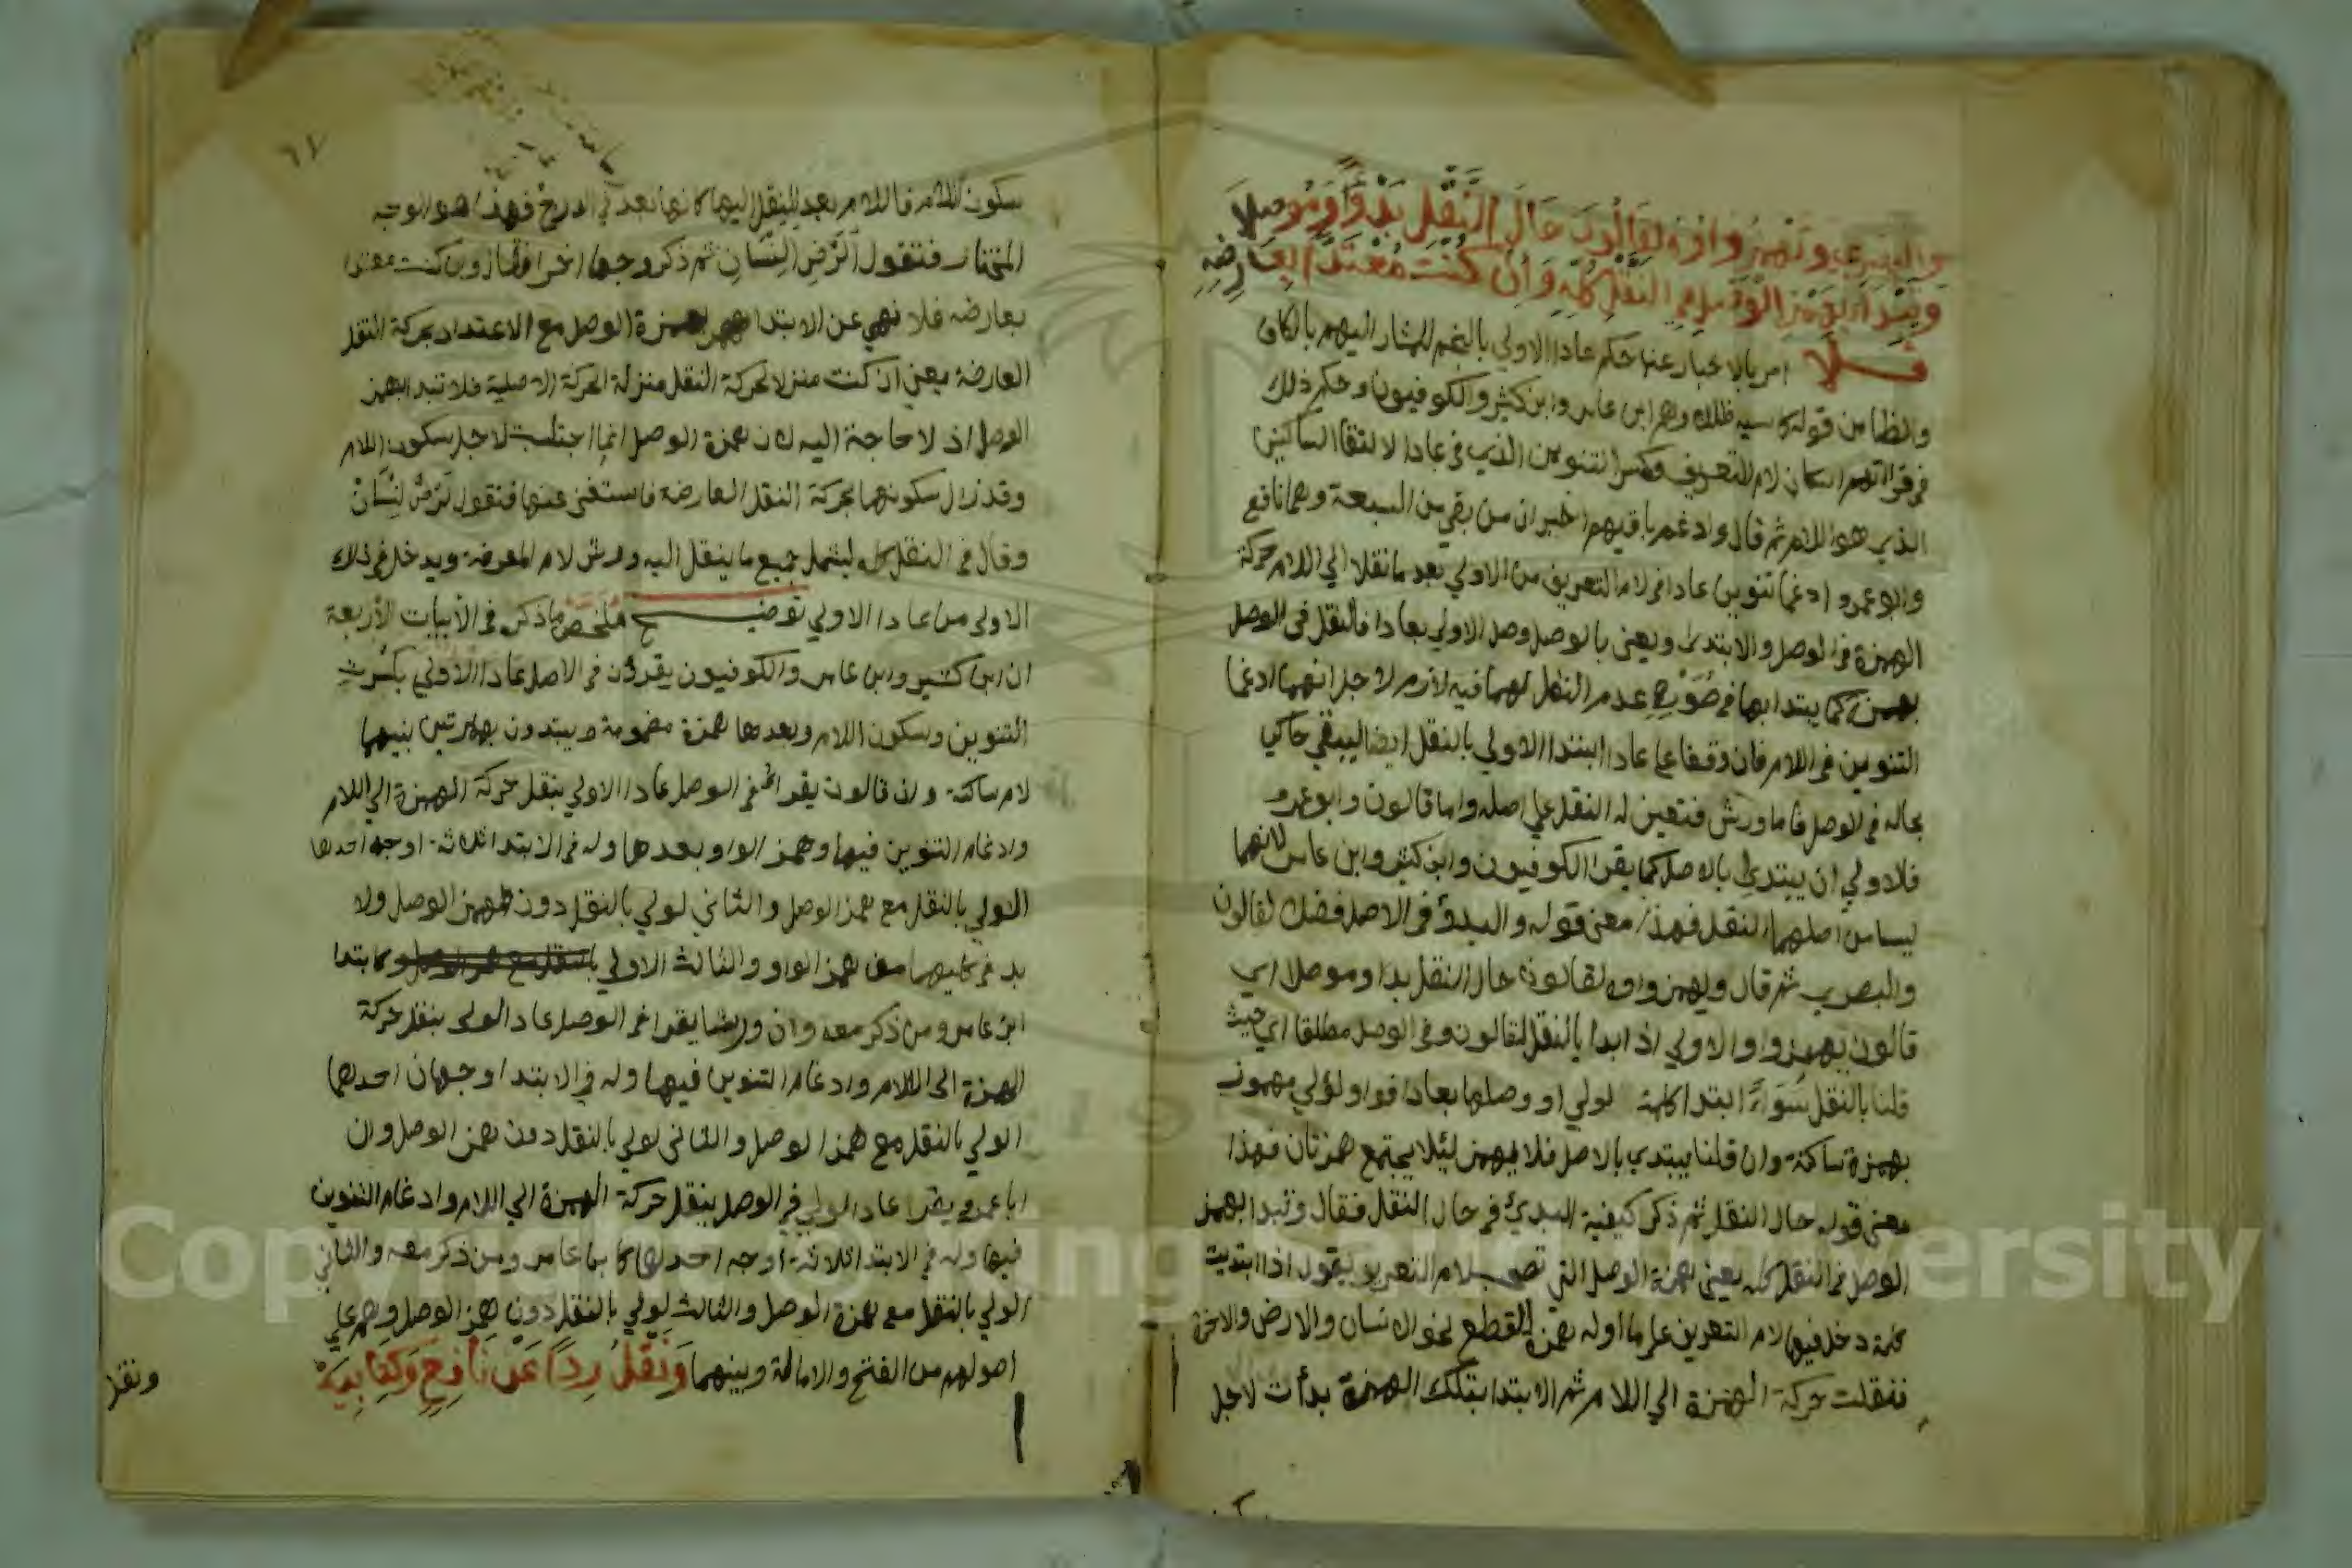 والبصري وتهمز واوه لقالون حال النقل بدأ وموصلا
وتبدا بهمز الوصل في النقل كله وان كنت معتدا بعارضه
فلا امر بالاخبار عنها حكم عادا الاولي بالضم للمشار اليهم بالكاف
والظا من قوله كاسيه ظللا وهم ابن عامر وابن كثير والكوفيون وحكم ذلك
في قراتهم اسكان لام التعريف وكسر التنوين الذي في عادا لالتقا الساكنين
الذي هو اللام ثم قال وادغم باقيهم اخبر ان من بقي من السبعة وهما نافع
وابو عمرو ادغما تنوين عادا في لام التعريف من الاولي بعد ما نقلا الي اللام حركة
الهمزة في الوصل والابتدا ويعني بالوصل وصل الاولي بعادا فالنقل في الوصل
لهما فيه لازم لاجل انهما ادغما
التنوين في اللام فان وقفا علي عادا ابتدا الاولي بالنقل ايضا ليبقي حاكي
بحاله في الوصل فاما ورش فتعين له النقل علي اصله واما قالون وابو عمرو
فلاولي ان يبتدئ بالاصل كما يقرا الكوفيون وابن كثير وابن عامر لانهما
ليسا من اصلهما النقل فهذا معني قوله والبدؤ في الاصل فضل لقالون
والبصري ثم قال وتهمز واوه لقالون حال النقل بدا وموصلا اي
قالون يهمز واو الاولي اذا ابدا بالنقل لقالون وفي الوصل مطلقا اي حيث
قلنا بالنقل سواء ابتدا كلمة لولي او وصلها بعادا فواو لؤلي مهموز
بهمزة ساكنة وان قلنا يبتدي بالاصل فلا يهمز ليلا يجتمع همزتان فهذا
معني قوله حال النقل ثم ذكر كيفية البدئ في حال النقل فقال وتبدا بهمز
الوصل في النقل كله يعني همزة الوصل التي تصحب لام التعريف يقول اذا ابتديت
كلمة دخل فيها لام التعريف علي ما اوله همزة القطع نحو الانسان والارض والاخرة
فنقلت حركة الهمزة الي اللام ثم الابتدا بتلك الهمزة بدأت لاجل
٦٧
سكون اللام فاللام بعد النقل اليها كانها بعد في الدرج فهذا هو الوجه
المختار فتقول الرض النسان ثم ذكر وجها اخر فقال وان كنت معتدا
بعارضه فلا نهي عن الابتدا بهمزة الوصل مع الاعتداد بحركة النقل
العارضة يعني ان كنت منزلا لحركة النقل منزلة الحركة الاصلية فلا تبدا بهمز
الوصل اذ لا حاجة اليه لان همزة الوصل انما اجتلبت لاجل سكون اللام
وقد زال سكونها بحركة النقل العارضة فاستغني عنها فتقول لرض لنسان
وقال في النقل كله ليشمل جميع ما ينقل اليه ورش لام المعرفة ويدخل في ذلك
الاولي من عادا الاولي توضيح ملخص ما ذكر في الابيات الاربعة
ان ابن كثير وابن عامر والكوفيون يقرؤن في الاصل عادا الاولي بكسر
التنوين وسكون اللام وبعدها همزة مضمومة ويبتدون بهمزتين بينهما
لام ساكنة وان قالون يقرا في الوصل عادا الاولي بنقل حركة الهمزة الي اللام
وادغام التنوين فيها وهمز الواو بعدها وله في الابتدا ثلاثة اوجه احدها
الولي بالنقل مع همز الوصل والثاني لولي بالنقل دون همز الوصل ولا
بد في كليهما من همز الواو والثالث الاولي كابتدا
ابن عامر ومن ذكر معه وان ورشا يقرا في الوصل عاد الولي بنقل حركة
الهمزة الي اللام وادغام التنوين فيها وله في الابتدا وجهان احدهما
الولي بالنقل مع همز الوصل والثاني لولي بالنقل دون همز الوصل وان
ابا عمرو يقرا عاد الولي في الوصل بنقل حركة الهمزة الي اللام وادغام التنوين
فيها وله في الابتدا ثلاثة اوجه احدها كابن عامر ومن ذكر معه والثاني
الولي بالنقل مع همزة الوصل والثالث لولي بالنقل دون همز الوصل وهم علي
اصولهم من الفتح والامالة وبينهما ونقل ردا عن نافع وكتابيه
ونقل